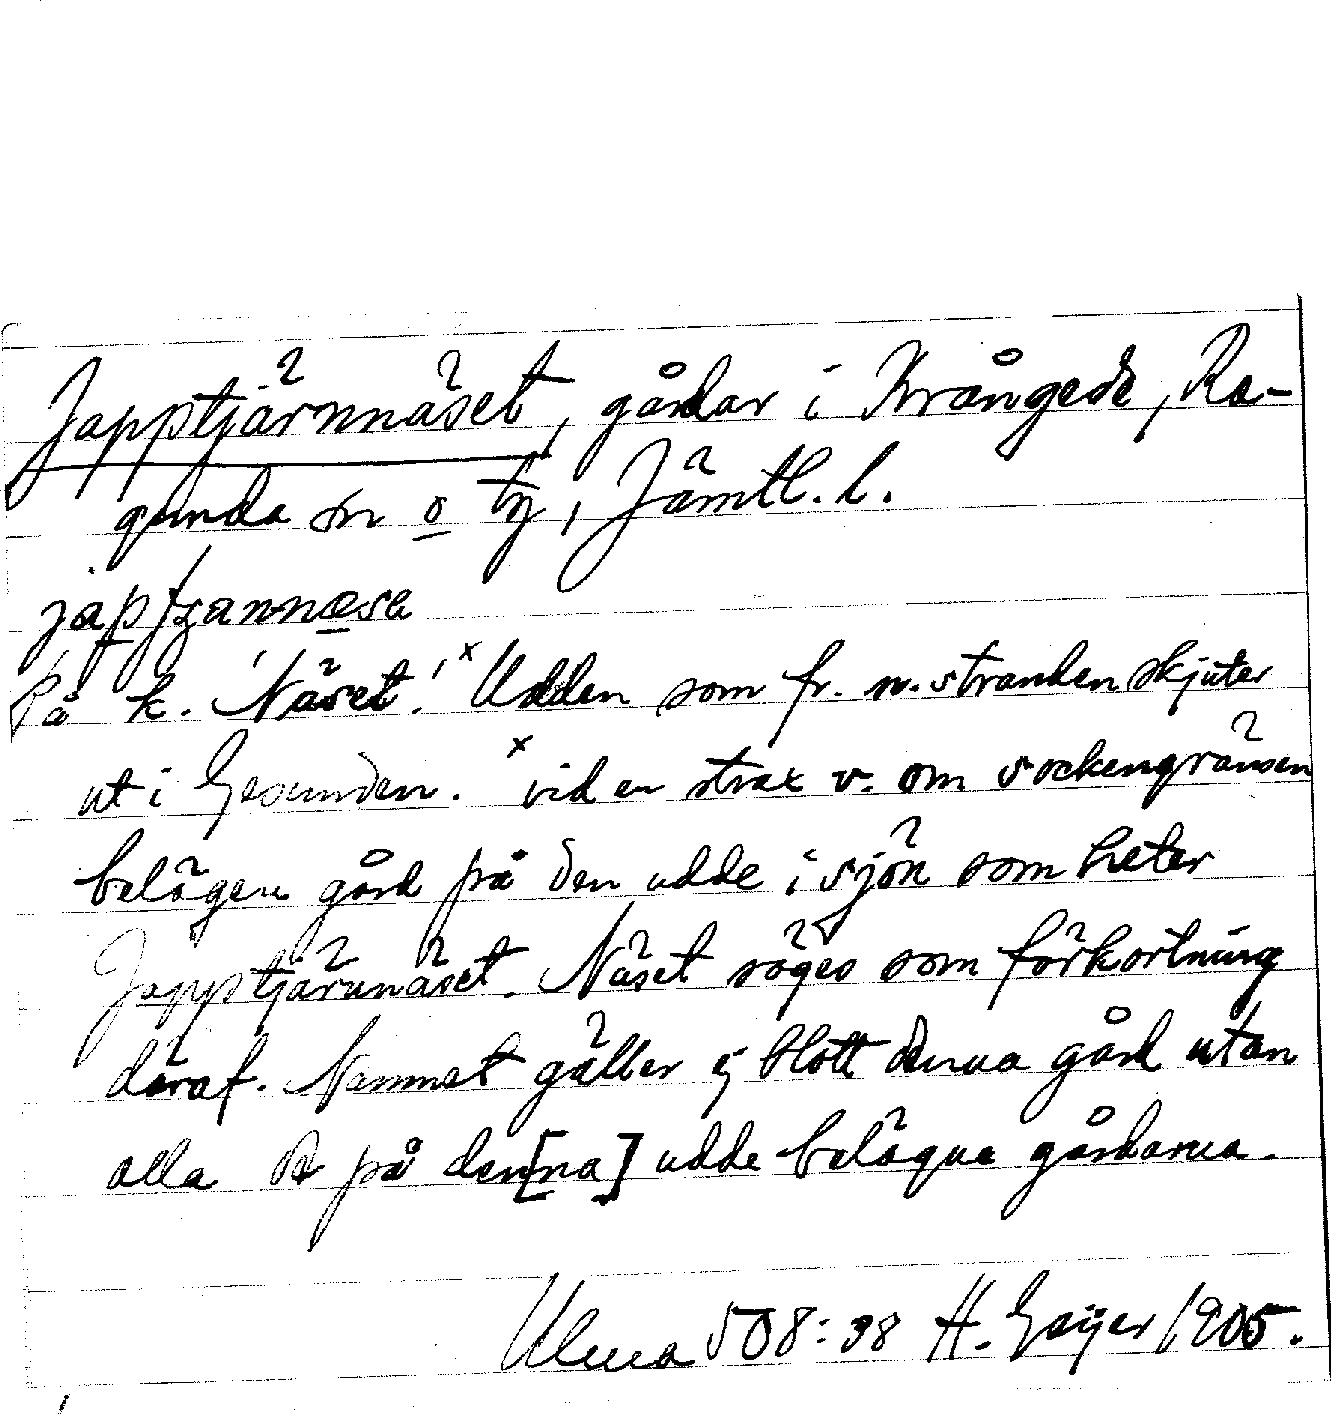 Japptjärnnäset, gårdar i Krångede, Ra-
gunda sn o tg, Jämtl. l.
På k. 'Näset'. x Udden som fr. n. stranden skjuter
ut i Gesunden. x vid en strax v. om sockengränsen
belägen gård på den udde i sjön som heter
Japptjärnnäset. Näset säges som förkortning
däraf. Namnet gäller ej blott denna gård utan
alla de på den[na] udde belägna gårdarna.
Ulma 508:38 H. Geijer 1905.